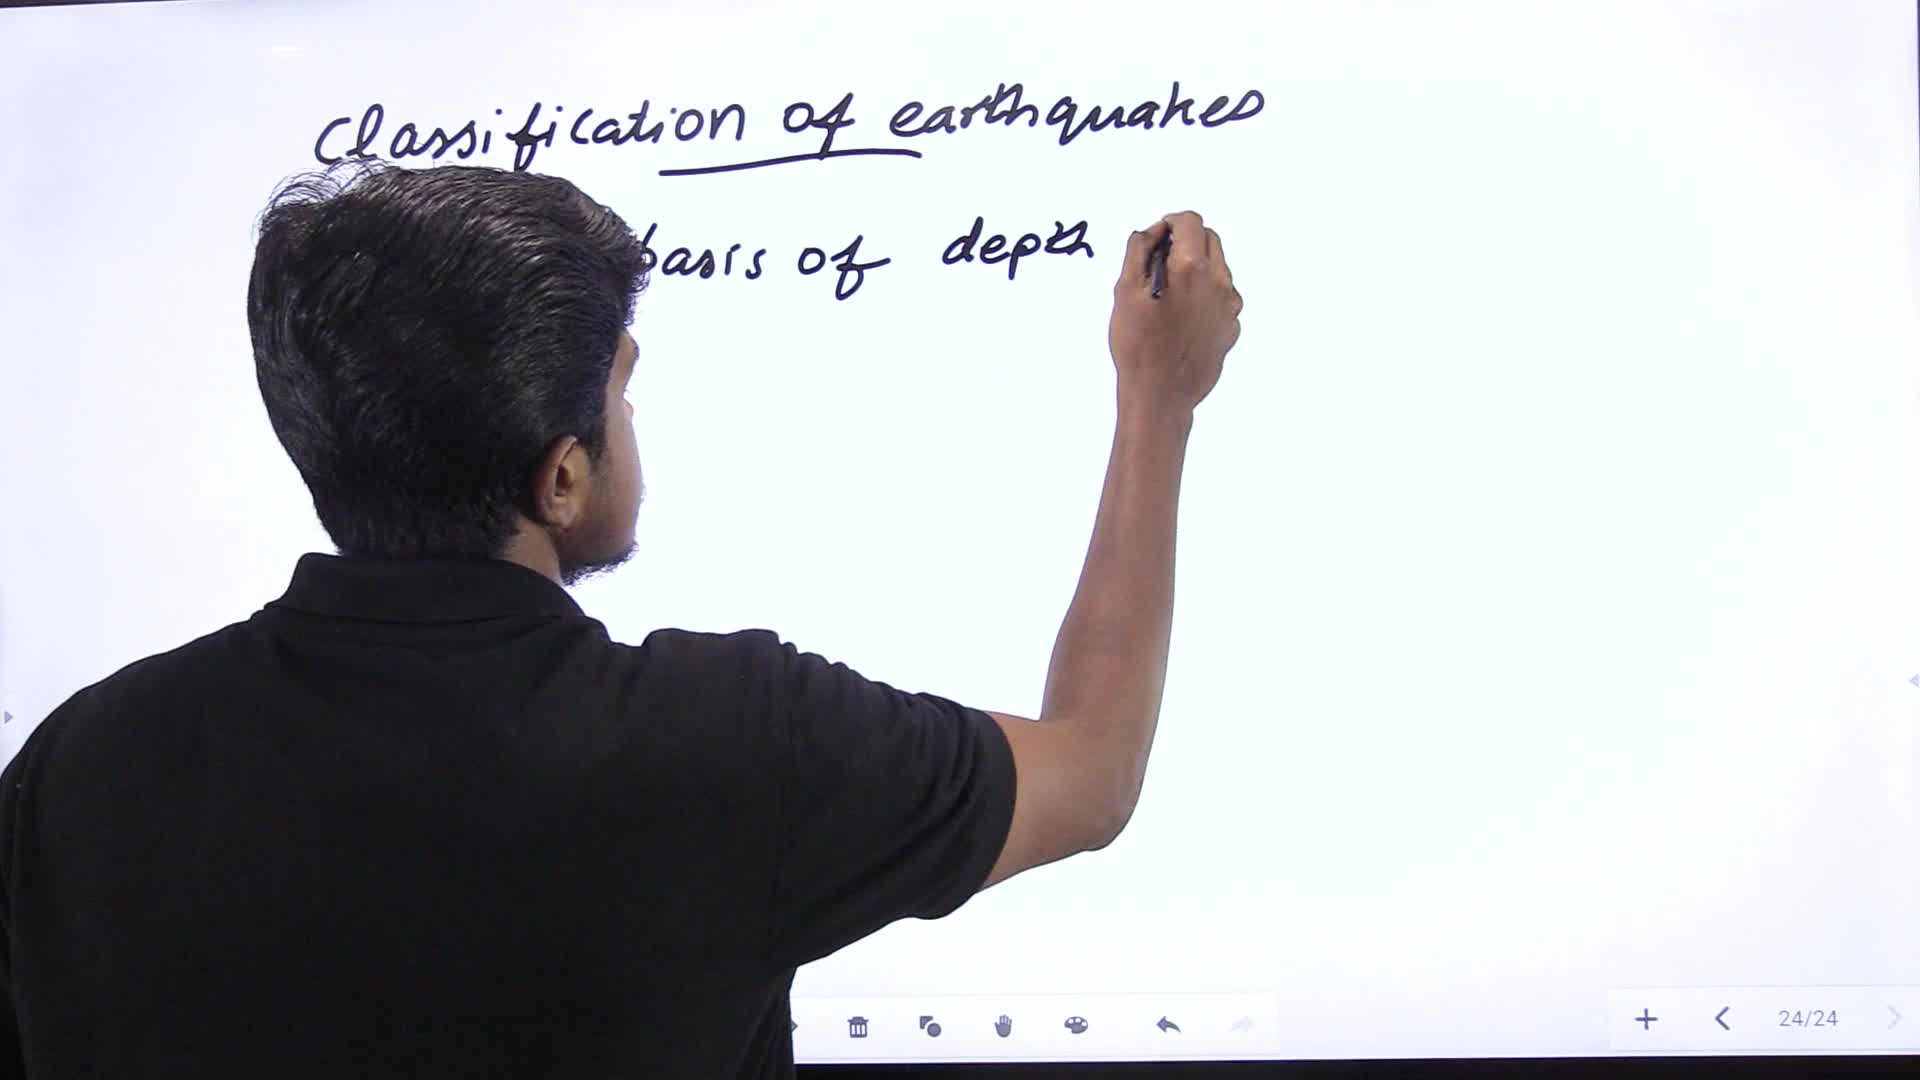 Classification of earthquakes
basis of depth
24/24